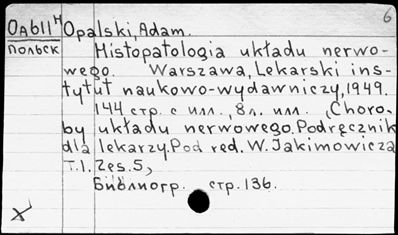 6
Оа6114 Opalski, Adam.
польск Histopatologia układu nerwo-
wego. Warszawa, Lekarski ins-
tytut naukowo-wydawniczy, 1949.
144 стр. с илл., 8л. илл. (Choro-
by układu nerwowego. Podręcznik
dla lekarzy. Pod red. W. Jakimowicza
T.1. Zes. 5)
Библиогр. стр. 136.